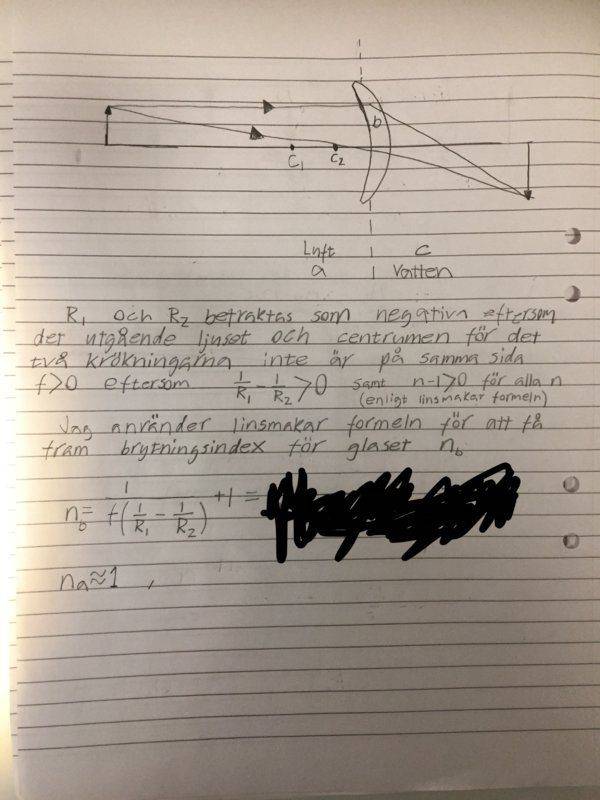 b
C₁ C₂
Luft | C
a | Vatten
R₁ och R₂ betraktas som negativa eftersom
det utgående ljuset och centrumen för det
två krökningarna inte är på samma sida
f>0 eftersom 1/R₁ - 1/R₂ > 0 samt n-1>0 för alla n
(enligt linsmakar formeln)
Jag använder linsmakar formeln för att få
fram brytningsindex för glaset n_b
n_b = 1/(f(1/R₁ - 1/R₂)) + 1 =
n_a ≈ 1 ,